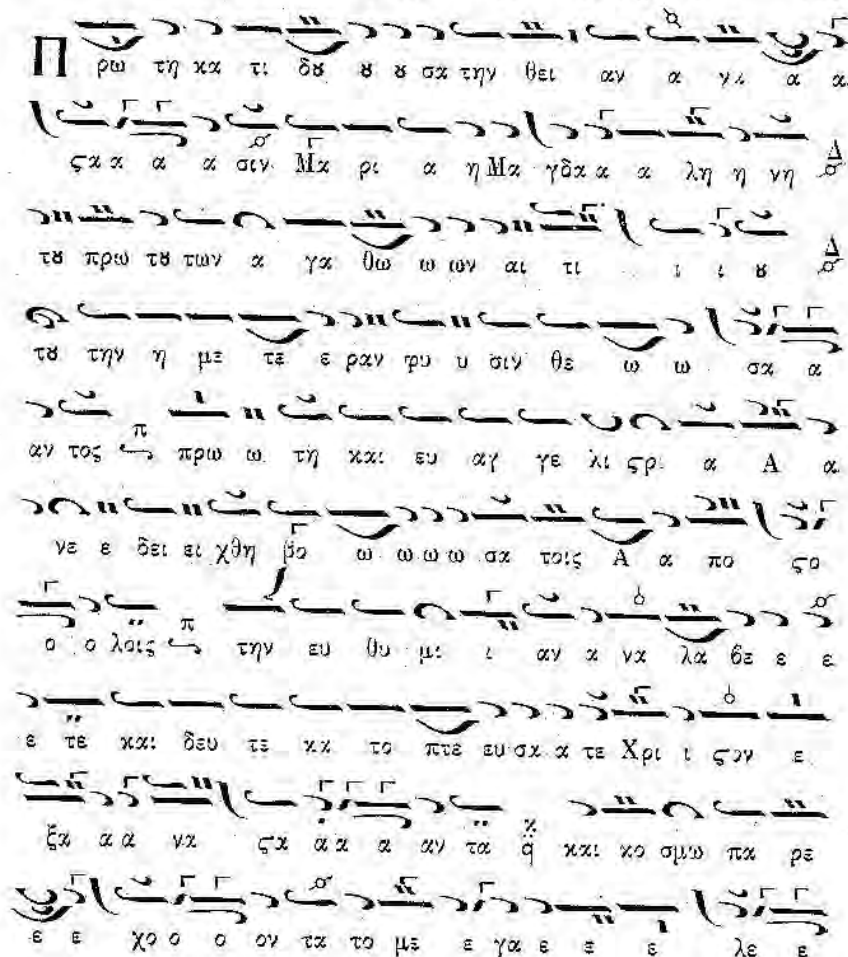 Π ρω τη κα τι δȣ ȣ ȣ σα την θει αν α νι α α
ϛα α α α σιν Μα ρι α η Μα γδα α α λη η νη Δ
τȣ πρω τȣ των α γα θω ω ων αι τι ι ι ȣ Δ
τȣ την η με τε ε ραν φυ υ σιν θε ω ω σα α
αν τος π πρω ω τη και ευ αγ γε λι ϛρι α Α α
νε ε δει ει χθη βο ω ω ω ω σα τοις Α α πο ϛο
ο ο λοις π την ευ θυ μι ι αν α να λα βε ε ε
ε τε και δευ τε κα το πτε ευ σα α τε Χρι ι ϛον ε
ξα α α να ϛα α α α αν τα q και κο σμω πα ρε
ε ε χο ο ο ον τα το με ε γα ε ε ε λε ε